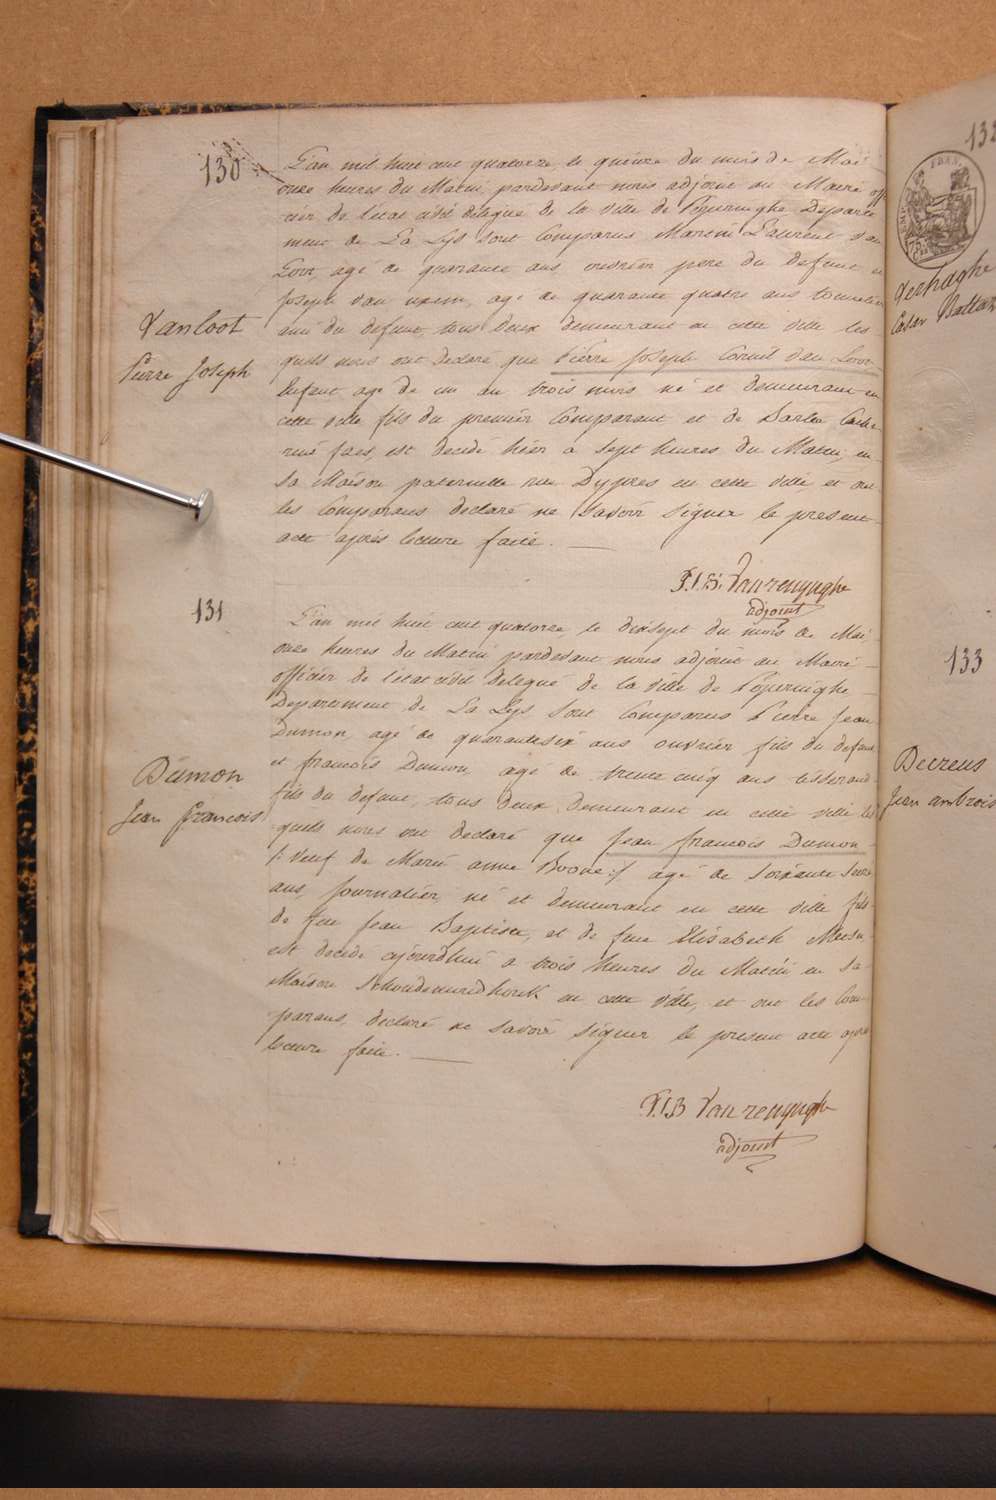 130
L'an mil huit cent quatorze, le quinze du mois de Mai
onze heures du Matin, pardevant nous adjoint au Maire offi-
cier de l'état civil delegué de la ville de Poperinghe Departe
ment de La Lys sont Comparus Martin Laurent van
Loot, agé de quarante ans ouvrier pere du defunt et
Joseph van, agé de quarante quatre ans tonnelier
ami du defunt, tous deux demeurant en cette ville les
quels nous ont declaré que Pierre Joseph Corneil van Loot
Enfant agé de un an trois mois né et demeurant en
cette ville fils du premier Comparant et de Cathe-
rine, est decidé hier a sept heures du Matin, en
sa Maison paternelle rue Dypres en cette ville, et ont
les Comparans declaré ne savoir signer le present
acte après lecture faite.
Vanloot
Pierre Joseph
F.J.B. Vanrenynghe
adjoint
131
L'an mil huit cent quatorze, le dixsept du mois de Mai
onze heures du Matin pardevant nous adjoint au Maire
officier de l'état civil delegué de la ville de Poperinghe
Departement de La Lys sont Comparus Pierre Jean
Dumon, agé de quarantesix ans ouvrier fils du defunt
et francois Dumon, agé de trente cinq ans tisserand
fils du defunt, tous deux demeurant en cette ville les
quels nous ont declaré que Jean francois Dumon
/: Veuf de Marie anne Boone :/ agé de soixante seize
ans, Journalier, né et demeurant en cette ville fils
de feu Jean Baptiste, et de feue Elisabeth
est decidé ajourdhui a trois heures du Matin en sa
Maison en cette ville, et ont les Com-
parans, declaré ne savoir signer le present acte après
lecture faite.
Dumon
Jean francois
F.J.B Vanrenynghe
adjoint
132
EMP. FRAN.
75
Verhaghe
133
Decreus
Jean ambrois